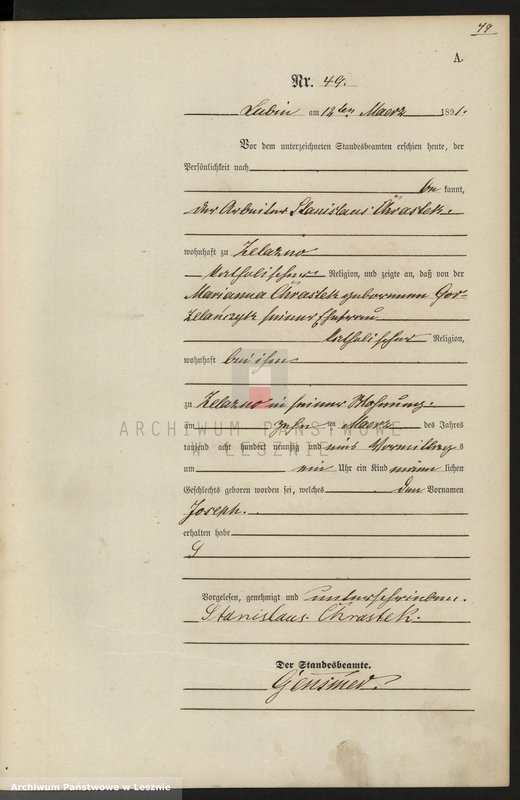 79
A.
Nr. 49.
Lubin am 12ten Maerz 1891.
Vor dem unterzeichneten Standesbeamten erschien heute, der
Persönlichkeit nach
be kannt,
der Arbeiter Stanislaus Chrastek.
wohnhaft zu Zelazno
katholischer Religion, und zeigte an, daß von der
Marianna Chrastek geborenen Gor-
zelańczyk seiner Ehefrau
katholischer Religion,
wohnhaft bei ihm
zu Zelazno in seiner Wohnung.
am zehn ten Maerz des Jahres
tausend acht hundert neunzig und eins Vormittags
um ein Uhr ein Kind männ lichen
Geschlechts geboren worden sei, welches den Vornamen
Joseph.
erhalten habe
Vorgelesen, genehmigt und unterschrieben.
Stanislaus Chrastek.
Der Standesbeamte.
ARCHIWUM PAŃSTWOWE
W LESZNIE
Archiwum Państwowe w Lesznie